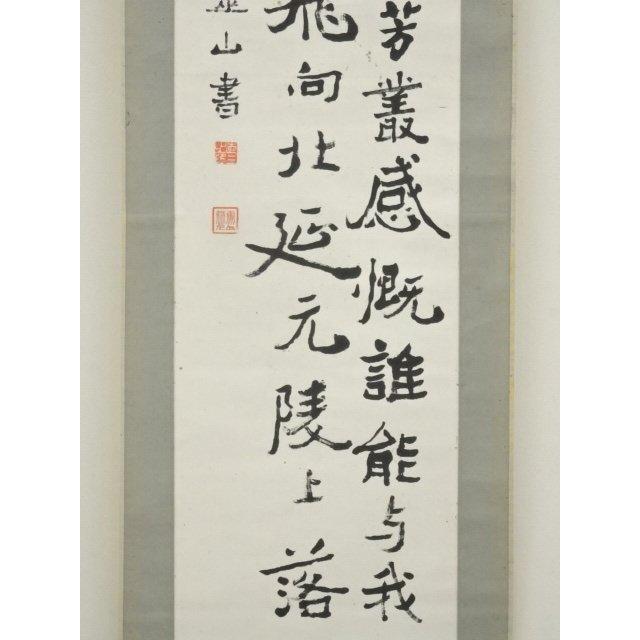 芳叢感慨誰能与我
飛向北延元陵上落
山書